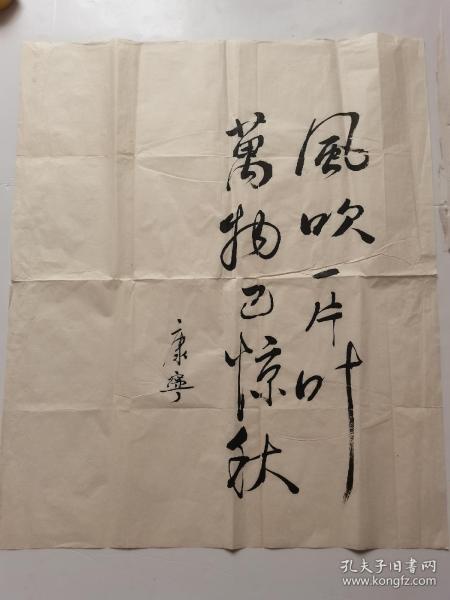 風吹一片叶
萬物已惊秋
康寧
孔夫子旧书网
www.kongfz.com